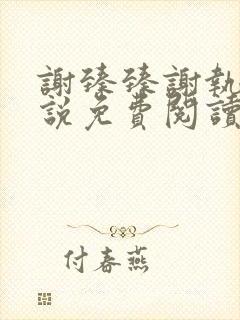 謝臻臻謝執
說免費閱讀
付春燕